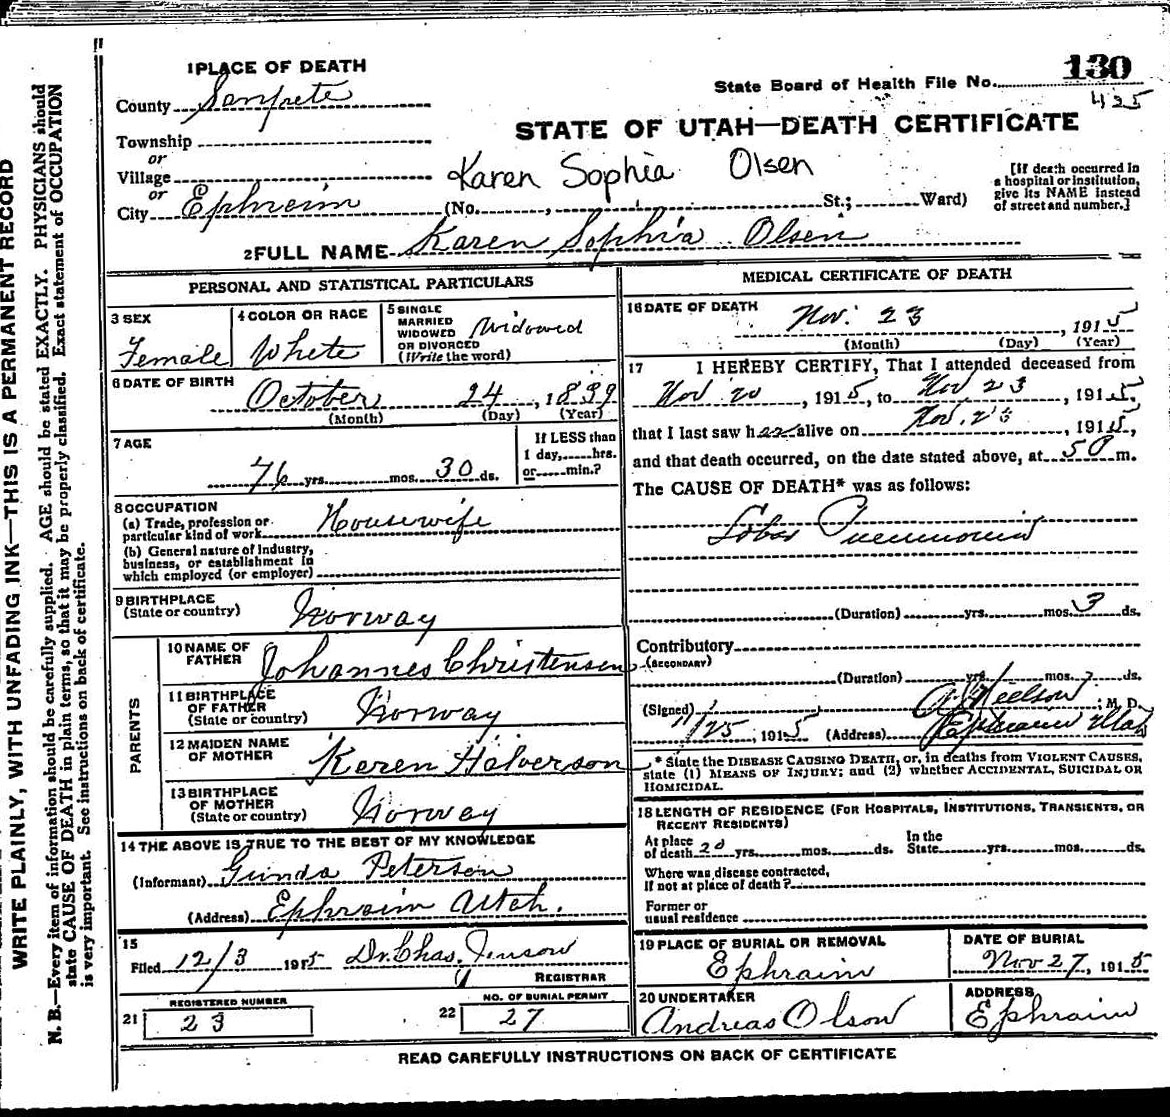 130
425
State Board of Health File No.
STATE OF UTAH—DEATH CERTIFICATE
1 PLACE OF DEATH
County Sanpete
Township
or
Village
or
City Ephraim (No. , St.; Ward)
Karen Sophia Olsen
[If death occurred in a hospital or institution, give its NAME instead of street and number.]
2 FULL NAME Karen Sophia Olsen
PERSONAL AND STATISTICAL PARTICULARS
3 SEX Female
4 COLOR OR RACE White
5 SINGLE MARRIED WIDOWED OR DIVORCED (Write the word) Widowed
6 DATE OF BIRTH October 24, 1839
(Month) (Day) (Year)
7 AGE 76 yrs. mos. 30 ds.
If LESS than 1 day, hrs. or min.?
8 OCCUPATION
(a) Trade, profession or particular kind of work Housewife
(b) General nature of Industry, business, or establishment in which employed (or employer)
9 BIRTHPLACE (State or country) Norway
PARENTS
10 NAME OF FATHER Johannes Christensen
11 BIRTHPLACE OF FATHER (State or country) Norway
12 MAIDEN NAME OF MOTHER Karen Halverson
13 BIRTHPLACE OF MOTHER (State or country) Norway
14 THE ABOVE IS TRUE TO THE BEST OF MY KNOWLEDGE
(Informant) Gunda Peterson
(Address) Ephraim Utah.
15
Filed 12/3 1915 Dr. Chas. Jenson
REGISTRAR
21 REGISTERED NUMBER 23
22 NO. OF BURIAL PERMIT 27
MEDICAL CERTIFICATE OF DEATH
16 DATE OF DEATH Nov. 23, 1915
(Month) (Day) (Year)
17 I HEREBY CERTIFY, That I attended deceased from
Nov 20, 1915, to Nov 23, 1915,
that I last saw her alive on Nov. 23, 1915,
and that death occurred, on the date stated above, at 5 P m.
The CAUSE OF DEATH* was as follows:
Lobar Pneumonia
(Duration) yrs. mos. 3 ds.
Contributory
(SECONDARY)
(Duration) yrs. mos. ds.
(Signed) Neelson, M. D.
11/25, 1915 (Address) Ephraim Utah
* State the DISEASE CAUSING DEATH, or, in deaths from VIOLENT CAUSES, state (1) MEANS OF INJURY; and (2) whether ACCIDENTAL, SUICIDAL OR HOMICIDAL.
18 LENGTH OF RESIDENCE (FOR HOSPITALS, INSTITUTIONS, TRANSIENTS, OR RECENT RESIDENTS)
At place of death 20 yrs. mos. ds. In the State yrs. mos. ds.
Where was disease contracted, If not at place of death?
Former or usual residence
19 PLACE OF BURIAL OR REMOVAL Ephraim
DATE OF BURIAL Nov 27, 1915
20 UNDERTAKER Andreas Olson
ADDRESS Ephraim
READ CAREFULLY INSTRUCTIONS ON BACK OF CERTIFICATE
WRITE PLAINLY, WITH UNFADING INK—THIS IS A PERMANENT RECORD
N. B.—Every item of information should be carefully supplied. AGE should be stated EXACTLY. PHYSICIANS should
state CAUSE OF DEATH in plain terms, so that it may be properly classified. Exact statement of OCCUPATION
is very important. See instructions on back of certificate.